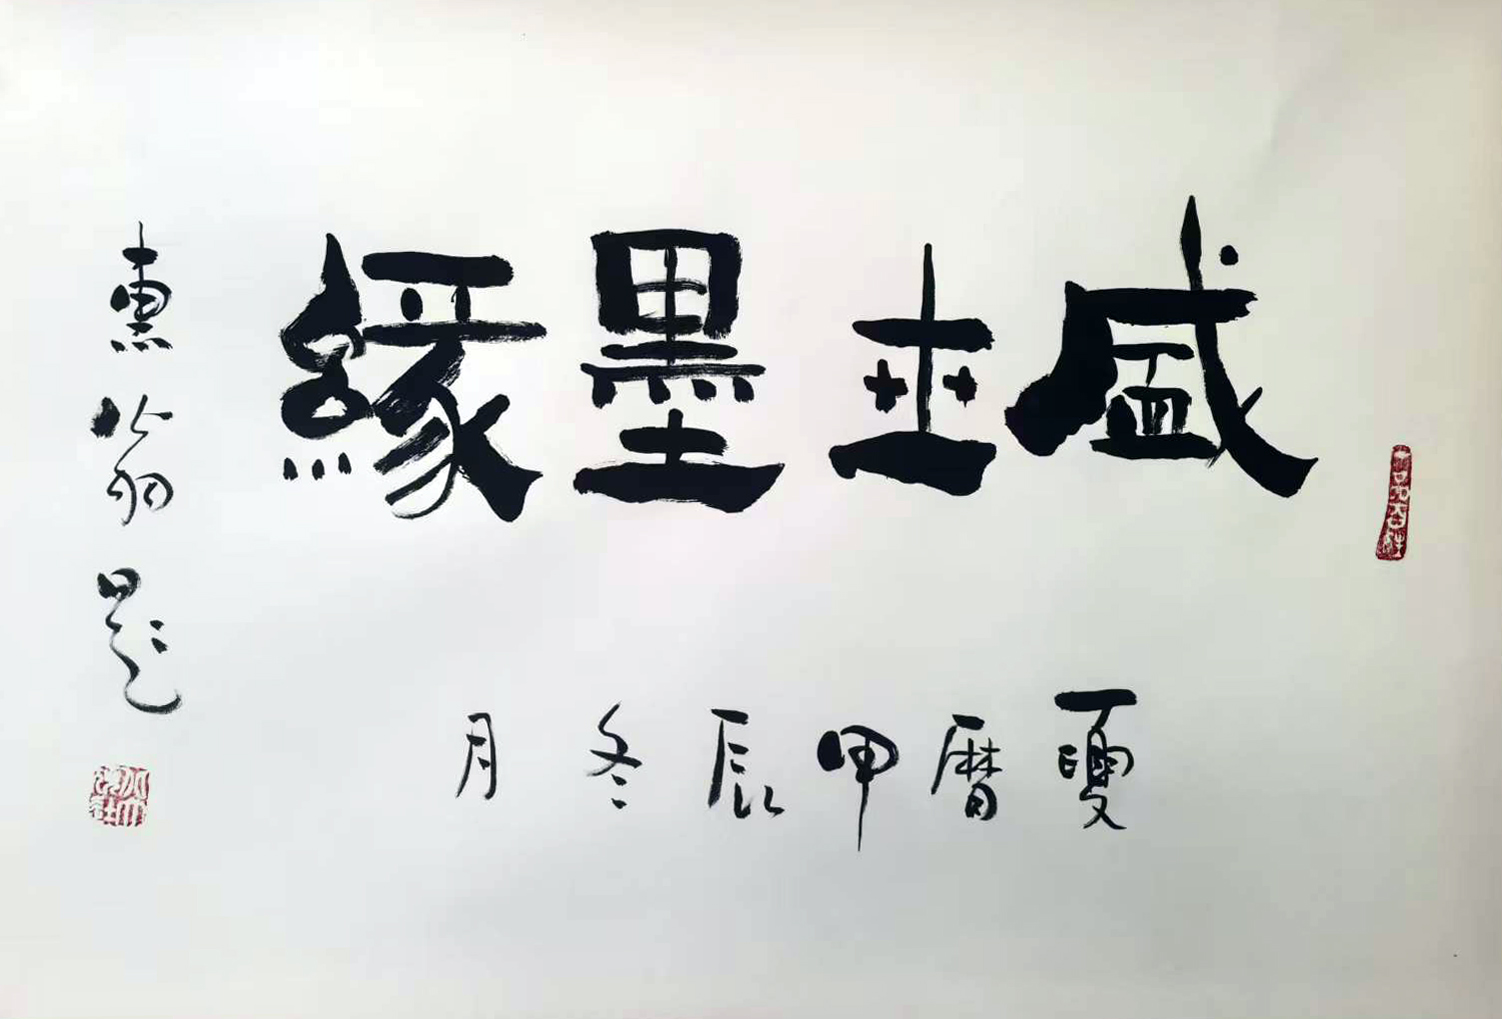 盛世墨緣
夏曆甲辰冬月
惠翁題